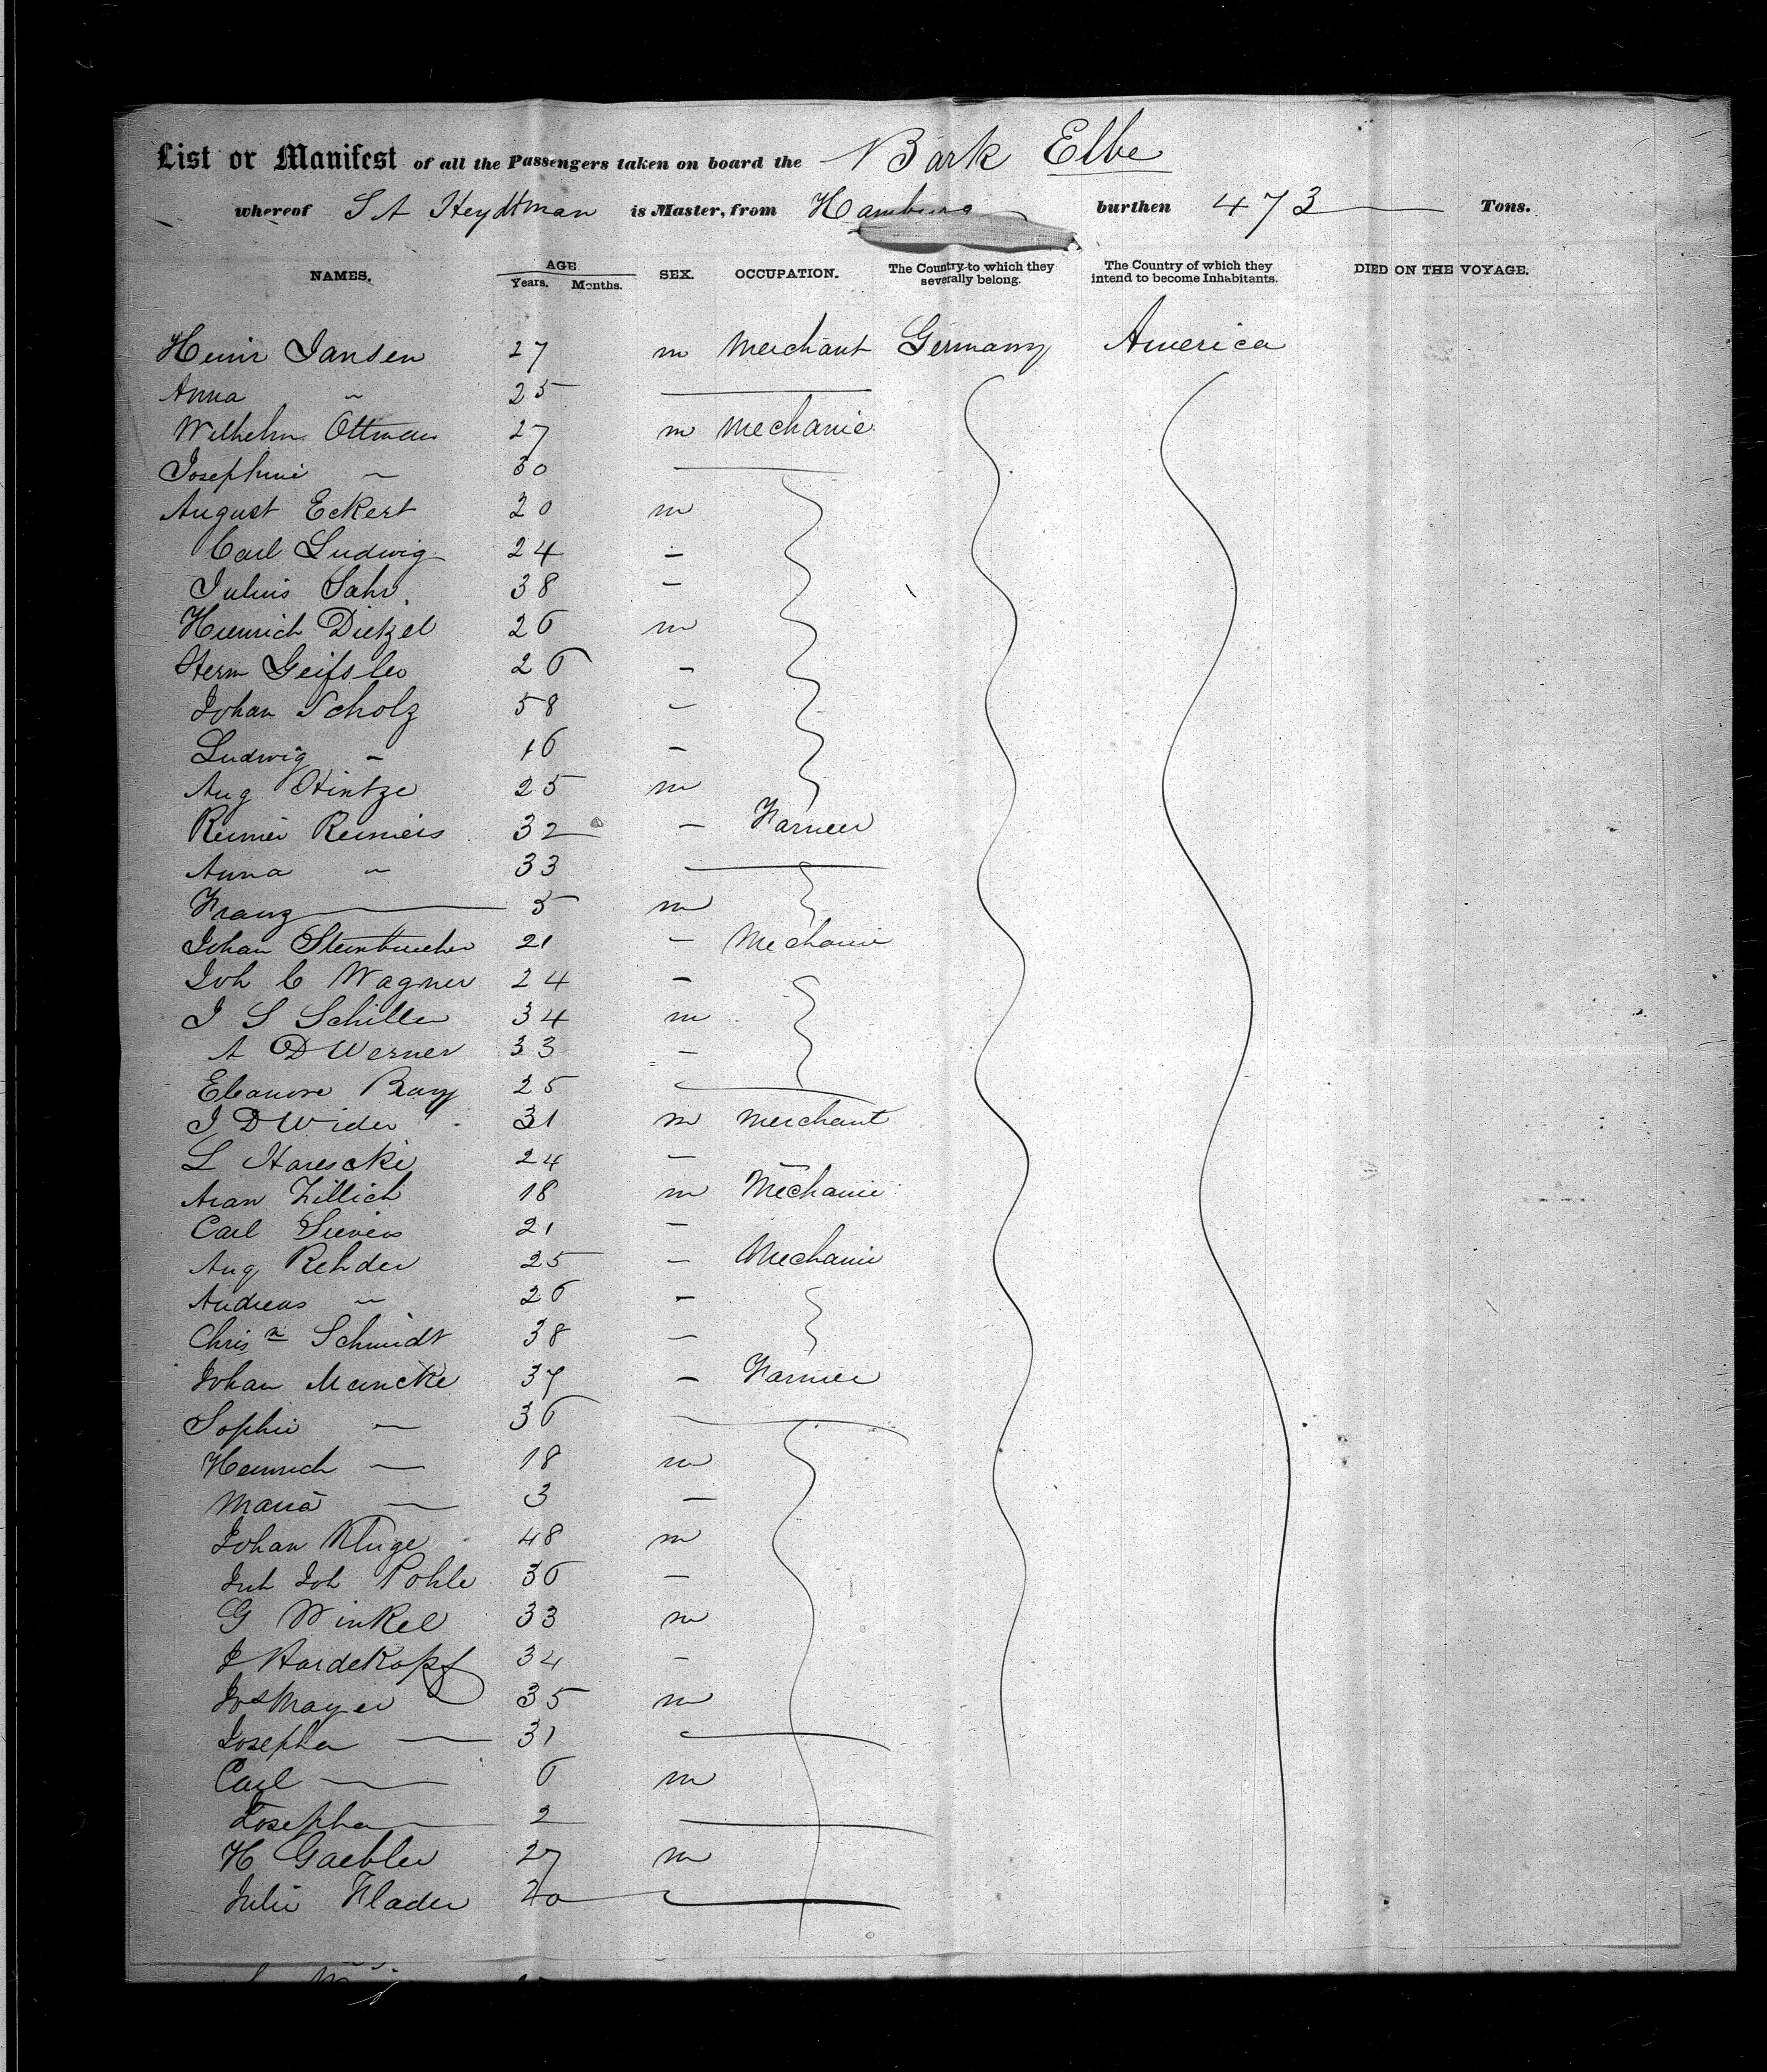 List or Manifest of all the Passengers taken on board the Bark Elbe
whereof S A Heydtman is Master, from Hamburg burthen 473 Tons.
NAMES. AGE Years. Months. SEX. OCCUPATION. The Country to which they severally belong. The Country of which they intend to become Inhabitants. DIED ON THE VOYAGE.
Heinr Jansen 27 m Merchant Germany America
Anna " 25
Wilhelm Ottman 27 m Mechanic
Josephine " 30
August Eckert 20 m
Carl Ludwig 24 -
Julius Sahr 38 -
Heinrich Dietzel 26 m
Herm Geifsler 26 -
Johan Scholz 58 -
Ludwig - 16 -
Aug Hintze 25 m
Reimer Reimers 32 - Farmer
Anna " 33
Franz 5 m
Johan 21 - Mechanic
Joh C Wagner 24 -
J S Schiller 34 m
A D Werner 33 -
Eleanore 25
J D Wider 31 m Merchant
L 24 -
Zillich 18 m Mechanic
Carl Sievers 21 -
Aug Rehder 25 - Mechanic
Andreas " 26 -
Chrisn Schmidt 38 -
Johan Muncke 37 - Farmer
Sophie - 36
Heinrich - 18 m
Maria - 3 -
Johan Kluge 48 m
Joh Pohle 36 -
G Winkel 33 m
J Hardekopf 34 -
Jos Mayer 35 m
Josepha - 31
Carl - 6 m
Josepha - 2
H Gaebler 27 m
Julie Flader 20